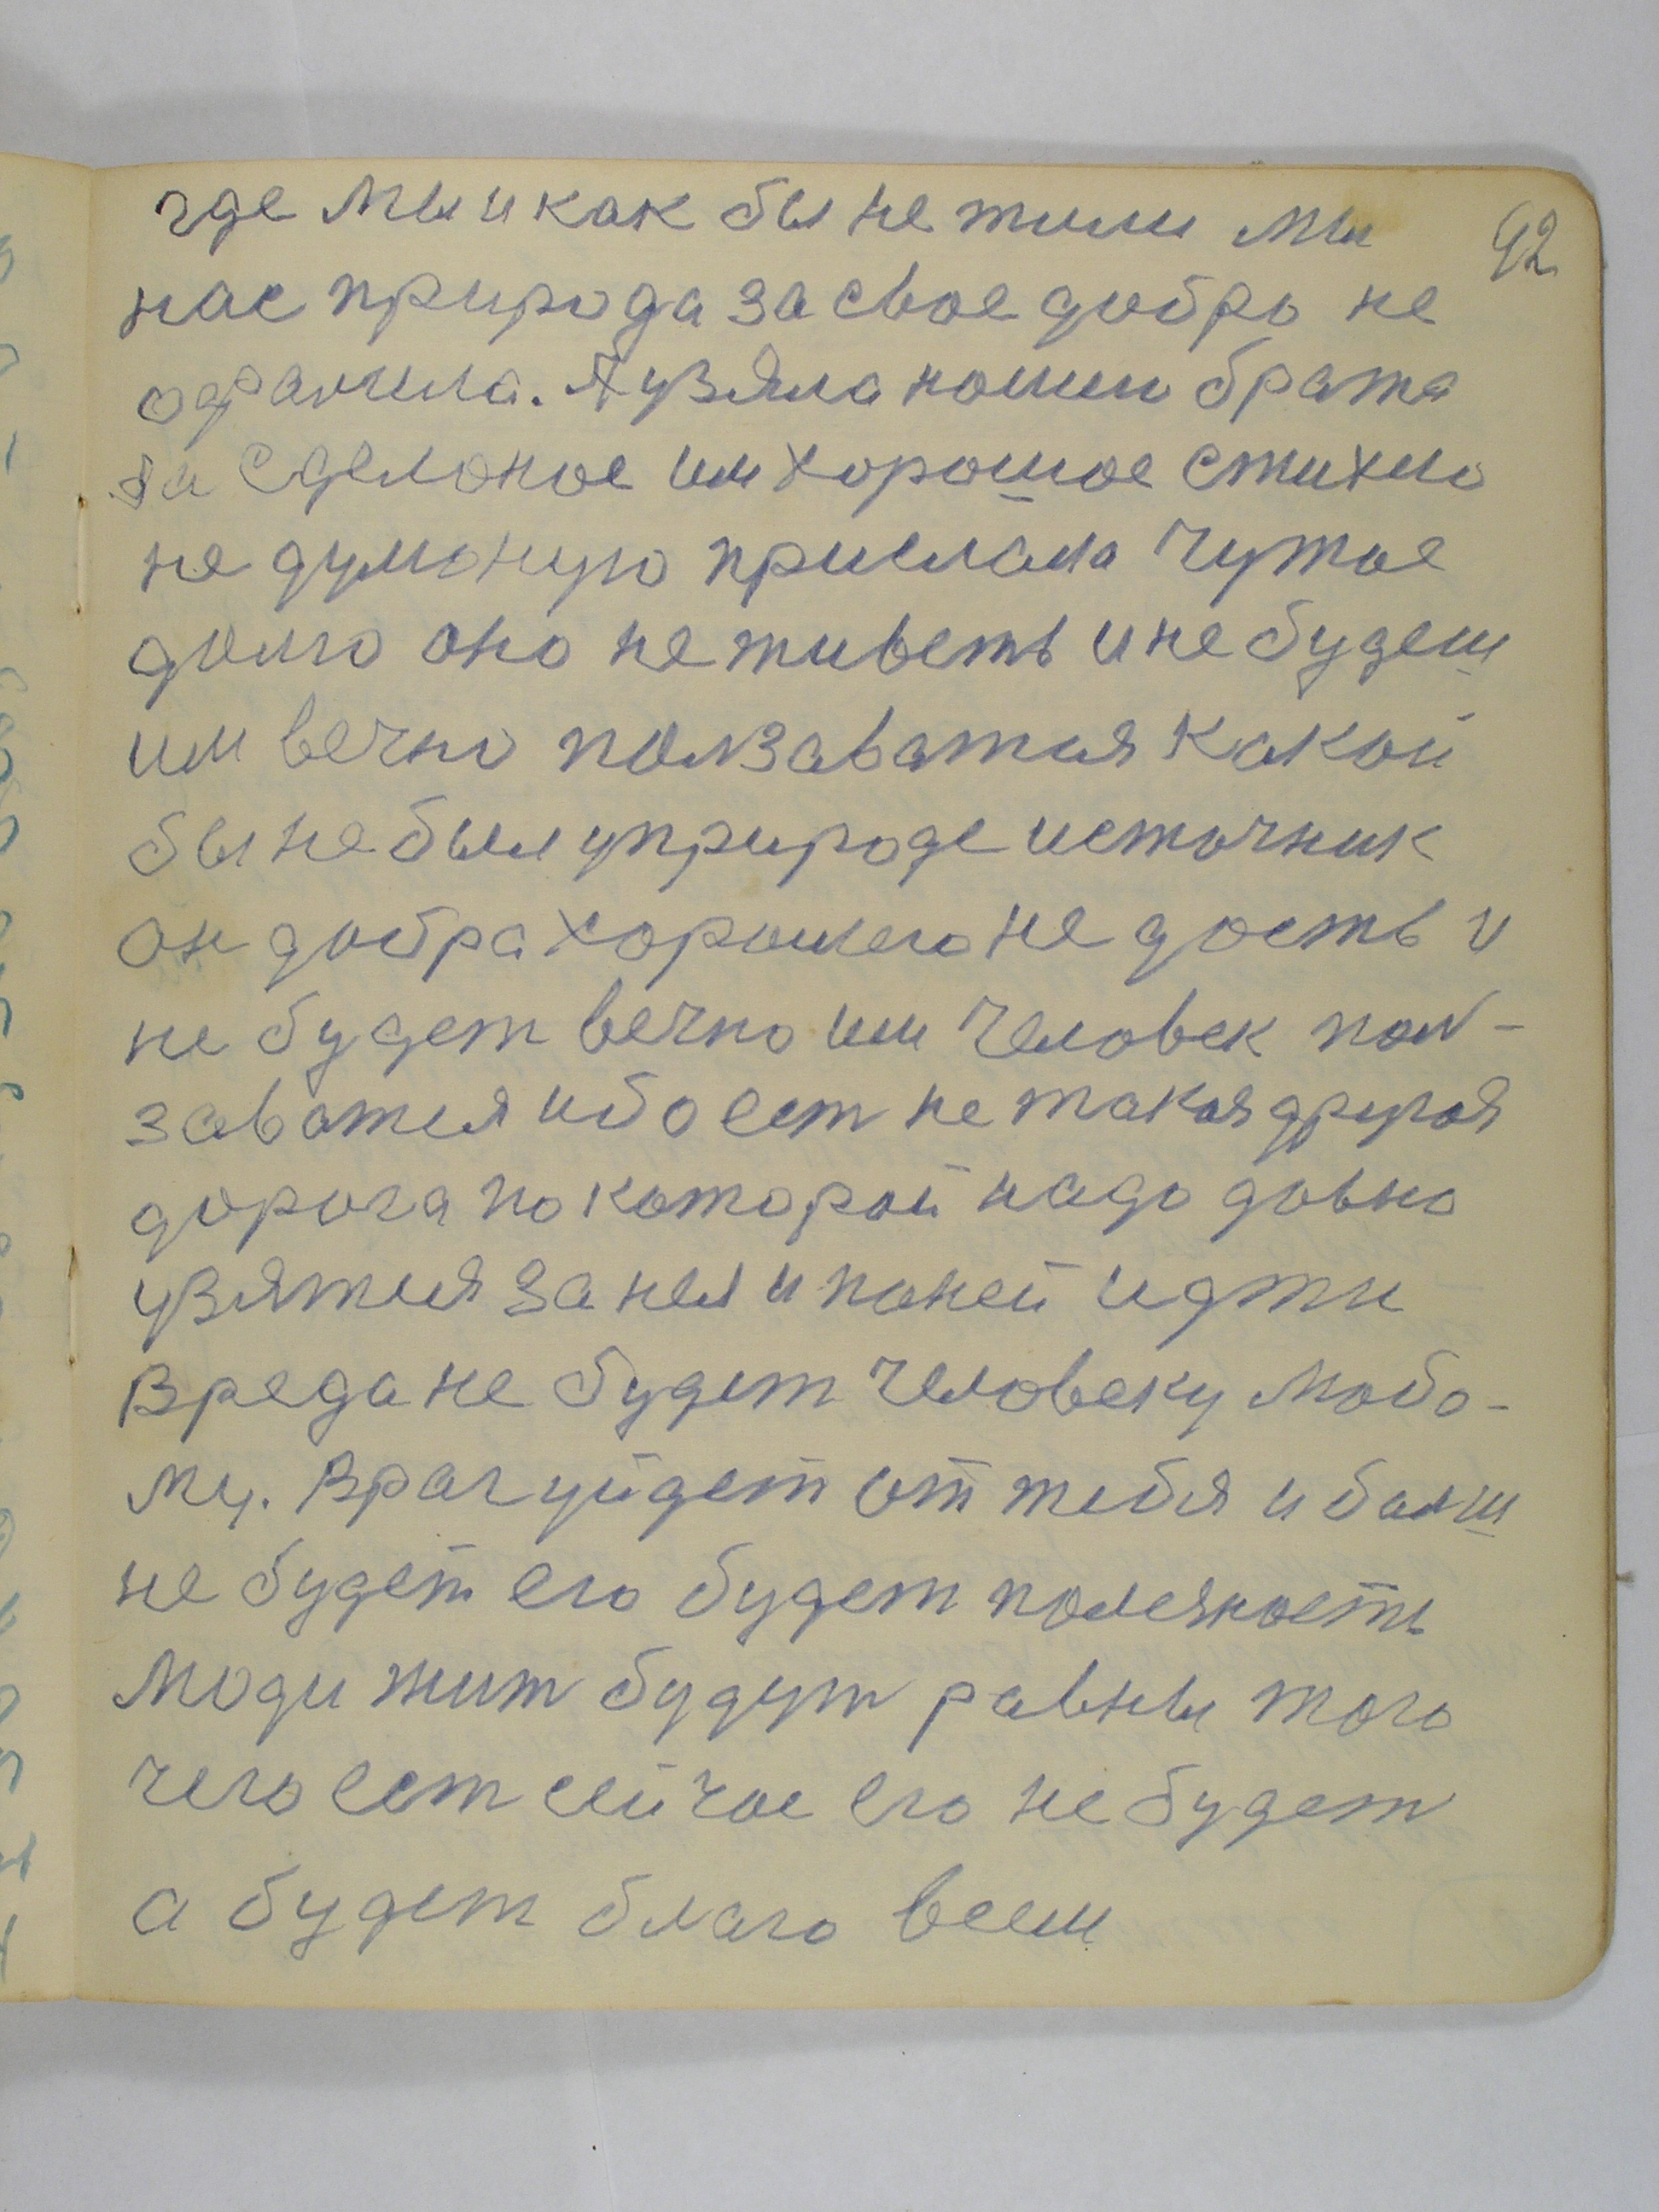 где мы и как бы не жили мы
92
нас природа за свое добро не
ографила. А узяла нашиго брата
за сделоное им хорошое стихию
не думоную прислала Чужое
долго оно не живеть и не будеш
им вечно ползаватися какой
бы не был у природе источник
он добра хорошего не дость и
не будет вечно им Человек пол-
заватися ибо ест не такая другая
дорога по каторой надо довно
узятися за неи и по ней идти
Вреда не будет Человеку любо-
му. Враг уйдет от тебя и болш
не будет его будет полезность
Люди жит будут равны того
чего ест сейчас его не будет
а будет благо всем